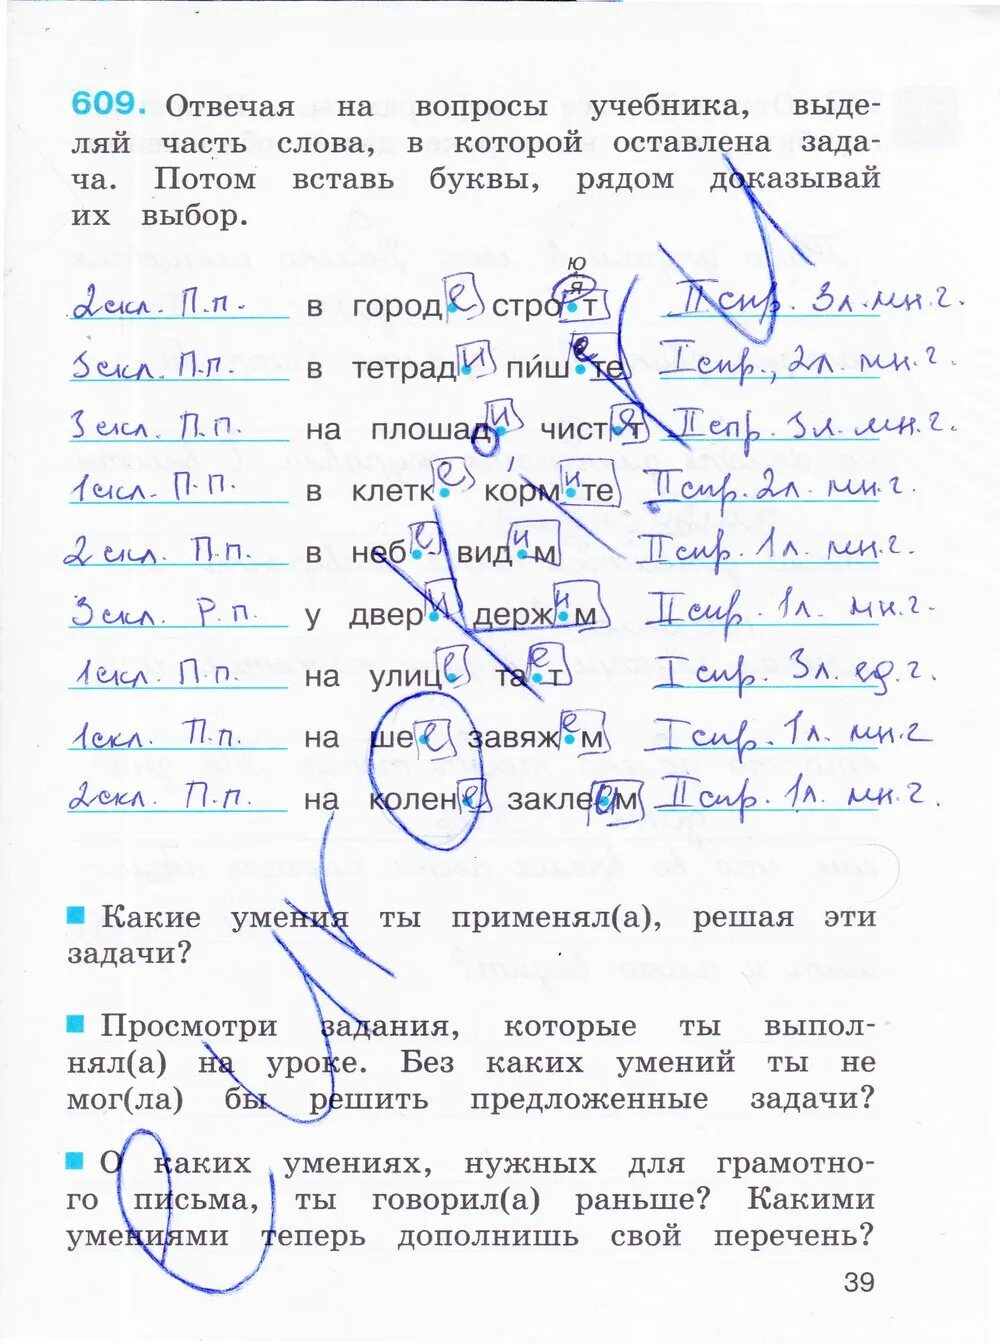 609. Отвечая на вопросы учебника, выде-
ляй часть слова, в которой оставлена зада-
ча. Потом вставь буквы, рядом доказывай
их выбор.
2скл. П.п. в городе строят II спр. 3л. мн.г.
3скл. П.п. в тетради пишете I спр., 2л. мн.г.
3скл. П.п. на площади чистят II спр. 3л. мн.г.
1скл. П.п. в клетке кормите II спр. 2л. мн.г.
2скл. П.п. в небе видим II спр. 1л. мн.г.
3скл. Р.п. у двери держим II спр. 1л. мн.г.
1скл. П.п. на улице тает I спр. 3л. ед.г.
1скл. П.п. на шее завяжем I спр. 1л. мн.г
2скл. П.п. на колене заклеем II спр. 1л. мн.г.
Какие умения ты применял(а), решая эти
задачи?
Просмотри задания, которые ты выпол-
нял(а) на уроке. Без каких умений ты не
мог(ла) бы решить предложенные задачи?
О каких умениях, нужных для грамотно-
го письма, ты говорил(а) раньше? Какими
умениями теперь дополнишь свой перечень?
39